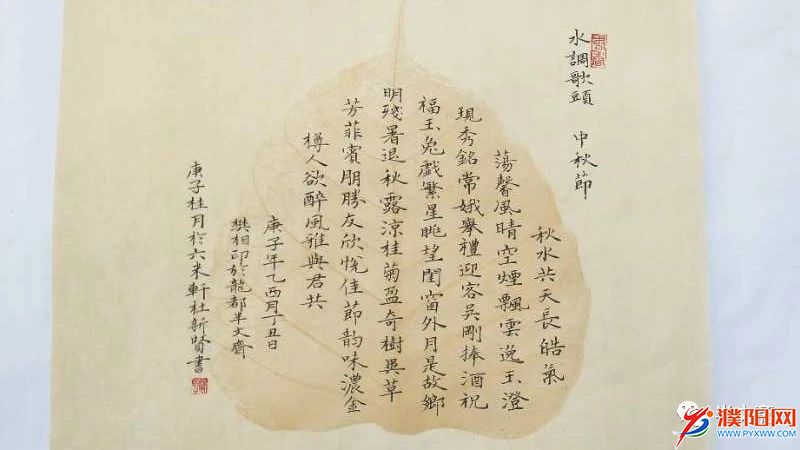 水調歌頭　中秋節
秋水共天長皓氣
蕩馨風晴空煙飄雲逸玉澄
現秀銘常娥舉禮迎客吳剛捧酒祝
福玉兔戲繁星眺望閨窗外月是故鄉
明殘暑退秋露涼桂菊盈奇樹異草
芳菲賓朋勝友欣悅佳節韵味濃金
樽人欲醉風雅與君共
庚子年乙酉月丁丑日
樊相印於龍都半文齋
庚子桂月於六米軒杜新賢書
濮阳网
WWW.PYXWW.COM